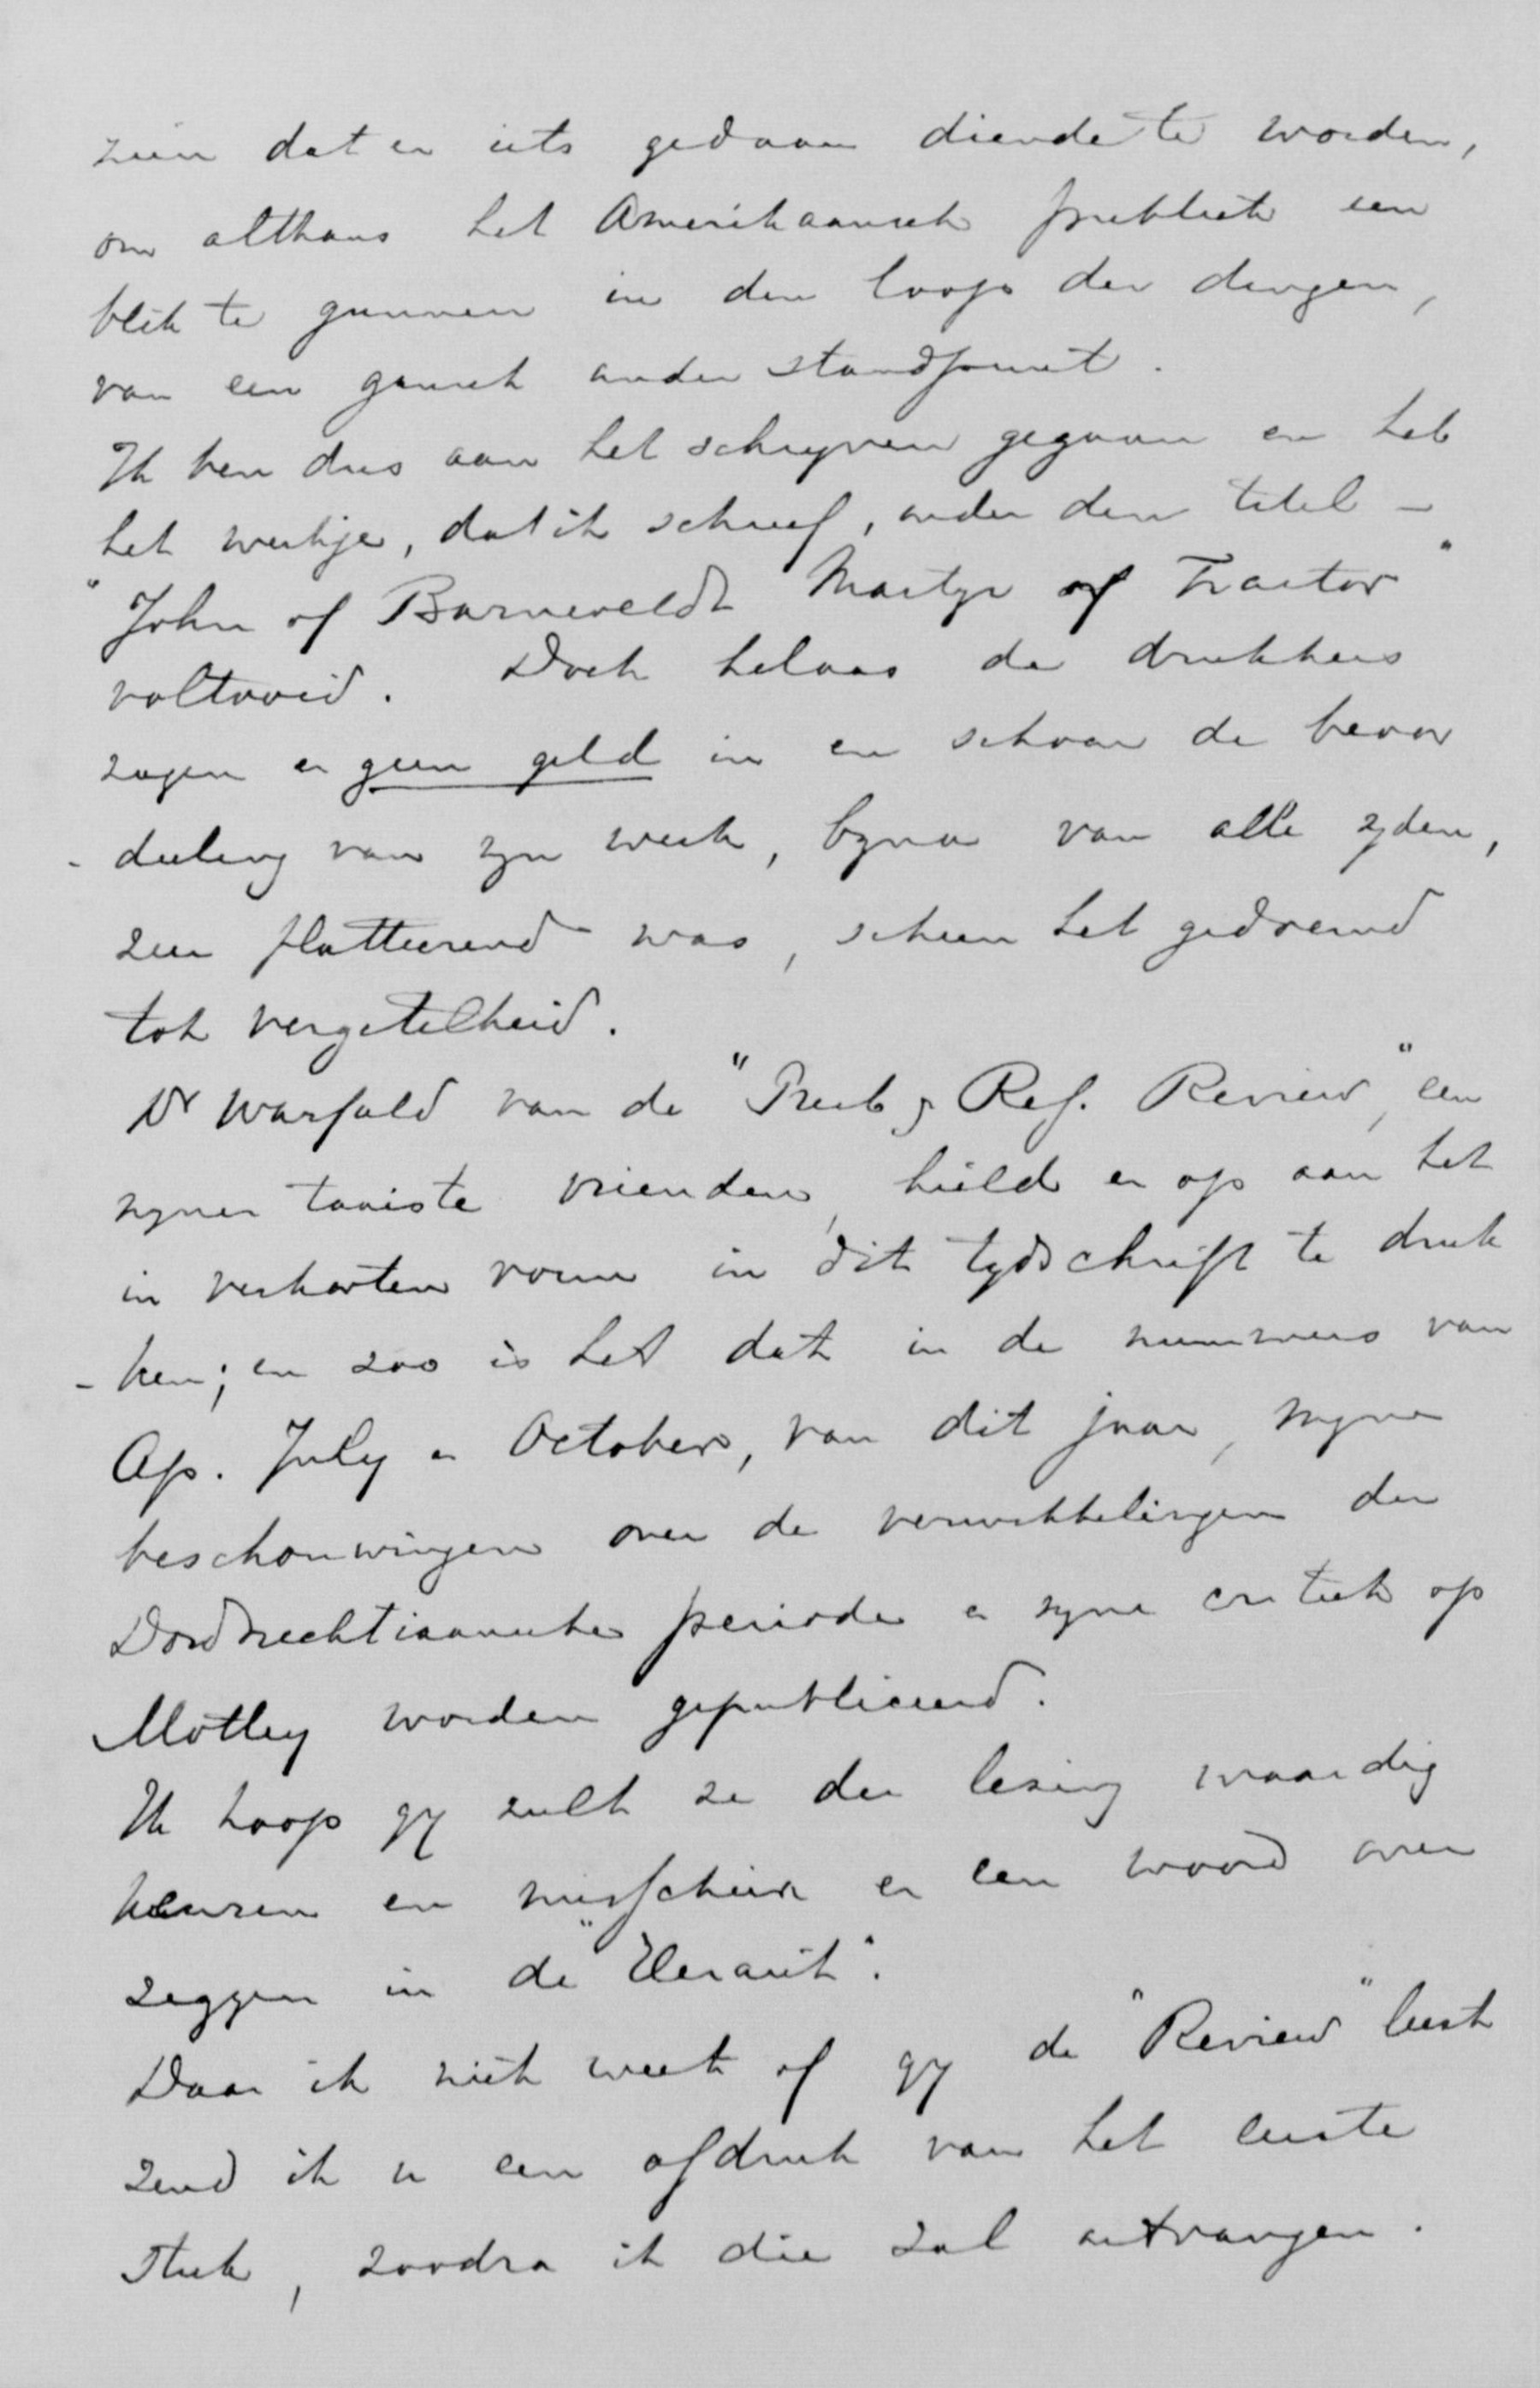 zien dat er iets gedaan diende te worden,
om althans het Amerikaansch publiek een
blik te gunnen in den loop der dingen,
van een gansch ander standpunt.
Ik ben dus aan het schryven gegaan en heb
het werkje, dat ik schreef, onder den titel -
"John of Barneveldt Martyr of Traitor"
voltooid. Doch helaas de drukkers
zagen er geen geld in en schoon de beoor
- deeling van myn werk, byna van alle zyden,
zeer flatteerend was, scheen het gedoemd
tot vergetelheid.
Dr Warfield van de "Presb & Ref. Review," een
myner taaiste vrienden, hield er op aan het
in verkorten vorm in dit tydschrift te druk
- ken; en zoo is het dat in de nummers van
Ap. July en October, van dit jaar, myne
beschouwingen over de verwikkelingen der
Dordrechtiaansche periode en myne critiek op
Motley worden gepubliceerd.
Ik hoop gy zult ze der lezing waardig
keuren en misschien er een woord over
zeggen in de "Heraut".
Daar ik niet weet of gy de "Review" leest
zend ik u een afdruk van het eerste
stuk, zoodra ik die zal ontvangen.